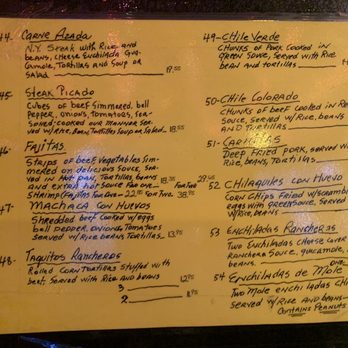 44- Carne Azada
N.Y. Steak with Rice and
beans, cheese Enchilada Gua-
camole, Tortillas and Soup or
Salad 17.55
45- Steak Picado
Cubes of beef simmered, bell
pepper, onions, tomatoes, sea-
soned, cooked our manner ser-
ved w/Rice, beans Tortillas Soup or Salad. 18.55
46- Fajitas
Strips of beef Vegetables Sim-
mered on delicious sauce, ser-
ved in hot pan, Tortillas, beans
and extra hot sauce For one 18.35 For Two
Shrimp Fajitas For one For Two 38.50
47- Machaca con Huevos
Shredded beef cooked w/eggs
bell pepper, onions, Tomatoes
served w/Rice beans Tortillas. 13.75
48- Taquitos Rancheros
Rolled Corn Tortillas Stuffed with
beef. Served with Rice and beans
3 12.75
2
49- Chile Verde
Chunks of Pork Cooked in
Green Sauce, Served with Rice
bean and tortillas
50- Chile Colorado
Chunks of beef Cooked in Re
Sauce, Served w/Rice, beans
and Tortillas
51- Carnitas
Deef Fried pork, served w
Rice, beans, Tortillas
52 Chilaquiles con Huevo
Corn chips Fried w/scramb
eggs with Green sauce, Served
w/Rice, beans
53 Enchiladas Rancheras
Two Enchiladas Cheese cover
Ranchera Sauce, guacamole,
beans.
54 Enchiladas de Mole
Two Mole enchiladas ch
Served w/Rice and beans
Contains Peanuts